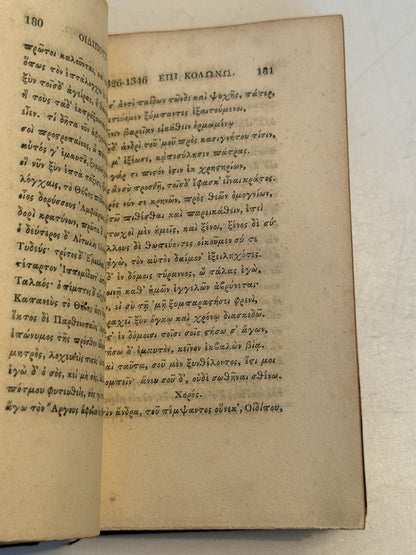 180 ΟΙΔΙΠΟΥ
πρῶτοι καλοῦνται, καὶ
ὅπως τὸν ἑπτάλογχον
ξὺν τοῖσδ' ἀγείρας, ἢ
ἢ τοὺς τάδ' ἐκπράξαντας
εἶεν· τί δῆτα νῦν ἀφ
σοὶ προστροπαίους, ὦ
αὐτός γ' ἐμαυτοῦ, ξυμ
οἳ νῦν ξὺν ἑπτὰ
λόγχαις, τὸ Θήβης
οἷος δορύσσους Ἀμφιάρεως
δορὶ κρατύνων, πρῶτα
ὁ δεύτερος δ' Αἰτωλὸς
Τυδεύς· τρίτος δ' Ἐτέοκλος
τέταρτον Ἱππομέδοντ'
Ταλαός· ὁ πέμπτος δ'
Καπανεὺς τὸ Θήβης
ἕκτος δὲ Παρθενοπαῖος
ἐπώνυμος τῆς πρόσθεν
μητρὸς, λοχευθεὶς πιστὸς
ἐγὼ δ' ὁ σὸς, κεἰ μὴ σὸς,
πότμου φυτευθεὶς,
ἄγω τὸν Ἄργους ἄφοβον
26-1346 ΕΠΙ ΚΟΛΩΝΩ. 181
σ' ἀντὶ παίδων τῶνδε καὶ ψυχῆς, πάτερ,
ετεύομεν ξύμπαντες ἐξαιτούμενοι,
νιν βαρεῖαν εἰκάθειν ὁρμωμένῳ
δ' ἀνδρὶ τοὐμοῦ πρὸς κασιγνήτου τίσιν,
μ' ἐξέωσε, κἀπεσύλησεν πάτρας.
γάρ τι πιστόν ἐστιν ἐκ χρηστηρίων,
ἂν σὺ προσθῇ, τοῖσδ' ἔφασκ' εἶναι κράτος.
ός νύν σε κρηνῶν, πρὸς θεῶν ὁμογνίων,
ῶ πιθέσθαι καὶ παρεικάθειν, ἐπεὶ
χοὶ μὲν ἡμεῖς, καὶ ξένοι, ξένος δὲ σύ·
λλους δὲ θωπεύοντες οἰκοῦμεν σύ τε
ἐγὼ, τὸν αὐτὸν δαίμον' ἐξειληχότες.
δ' ἐν δόμοις τύραννος, ὦ τάλας ἐγὼ,
οινῇ καθ' ἡμῶν ἐγγελῶν ἁβρύνεται·
εἰ σὺ τῇ 'μῇ ξυμπαραστήσει φρενὶ,
ραχεῖ ξὺν ὄγκῳ καὶ χρόνῳ διασκεδῶ.
τ' ἐν δόμοισι τοῖσι σοῖς στήσω σ' ἄγων,
σω δ' ἐμαυτὸν, κεῖνον ἐκβαλὼν βίᾳ.
αὶ ταῦτα, σοῦ μὲν ξυνθέλοντος, ἔστι μοι
ομπεῖν· ἄνευ σοῦ δ', οὐδὲ σωθῆναι σθένω.
Χορός.
τὸν ἄνδρα, τοῦ πέμψαντος οὕνεκ', Οἰδίπου,